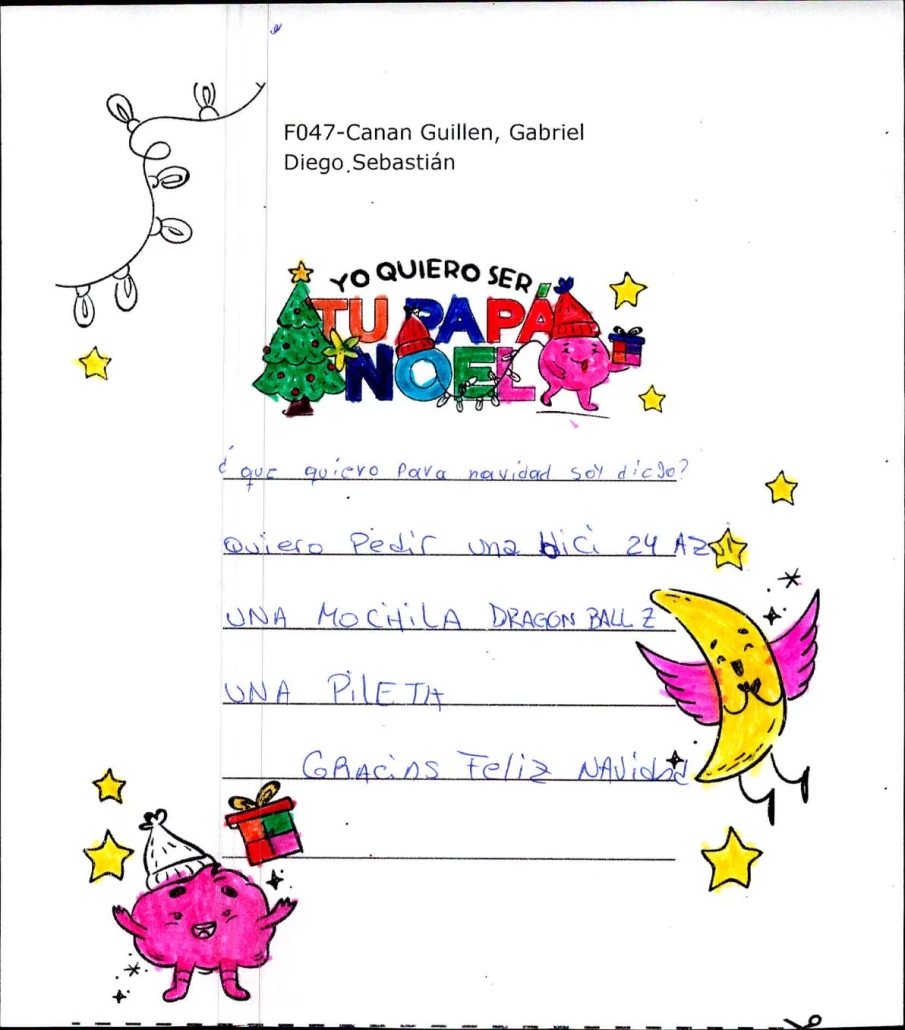 F047-Canan Guillen, Gabriel
Diego Sebastián
YO QUIERO SER
TU PAPÁ
NOEL
¿que quiero para navidad soy diego?
Quiero Pedir una bici 24 AZUl
UNA MOCHiLA DRAGON BALL Z
UNA PilETA
GRAciAS Feliz NAVidad